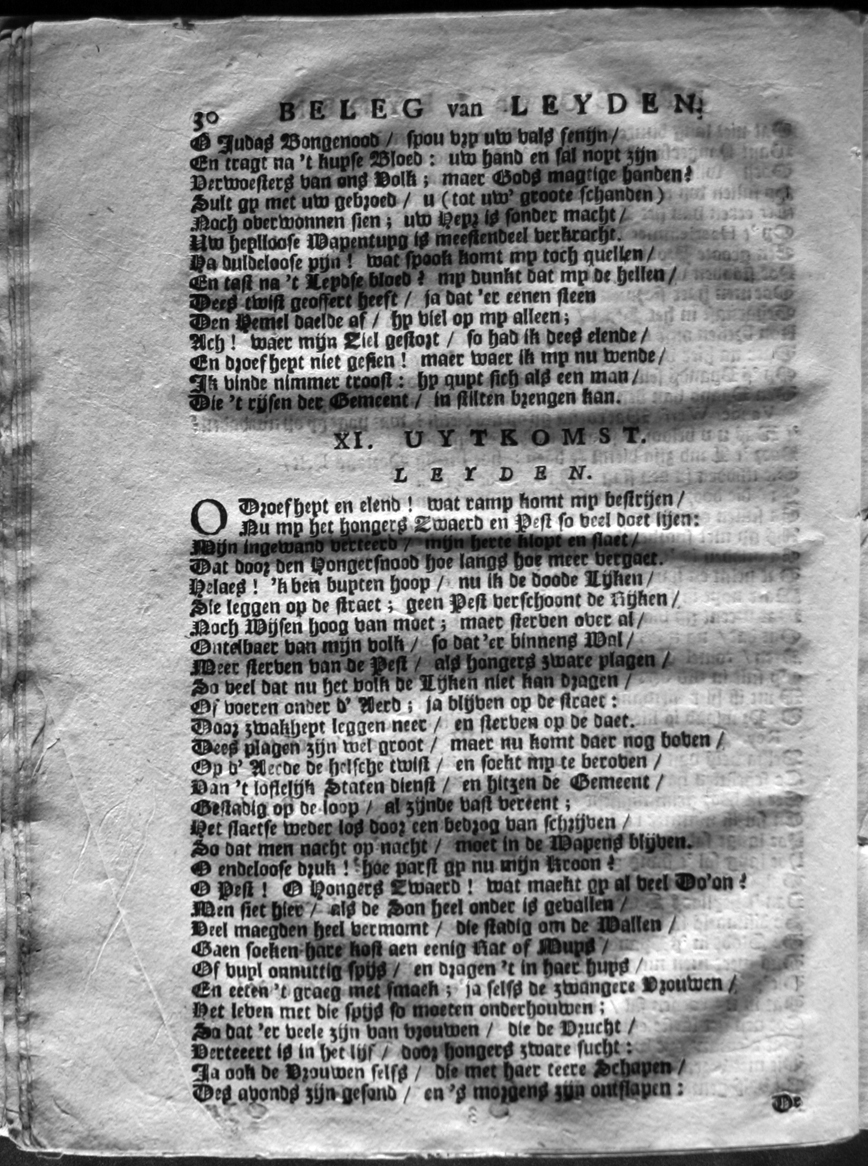 30 BELEG van LEYDEN.
O Judas Bongenood / spou vry uw vals fenijn /
En tragt na 't kupse Bloed : uw hand en sal noyt zijn
Verwoesters van ons Volk ; maer Gods magtige handen!
Sult gy met uw gebroed / u (tot uw' groote schanden)
Noch overwonnen sien ; uw Heyr is sonder macht /
Uw heyllloose Wapentuyg is meestendeel verkracht.
Ha duldeloose pijn ! wat spook komt my toch quellen /
En tast na 't Leydse bloed ? my dunkt dat my de hellen /
Dees twist geoffert heeft / ja dat 'er eenen steen
Den Hemel daelde af / hy viel op my alleen ;
Ach ! waer mijn Ziel gestort / so had ik dees elende /
En droefheyt niet gesien ! maer waer ik my nu wende /
Ik vinde nimmer troost : hy quyt sich als een man /
Die 't rijsen der Gemeent / in stilten brengen kan.
XI. UYTKOMST.
LEYDEN.
O Droefheyt en elend ! wat ramp komt my bestrijen /
Nu my het hongers Zwaerd en Pest so veel doet lijen :
Mijn ingewand verteerd / mijn herte klopt en slaet /
Dat door den Hongersnood hoe langs hoe meer vergaet.
Helaes ! 'k ben buyten hoop / nu ik de doode Lijken /
Sie leggen op de straet ; geen Pest verschoont de Rijken /
Noch Wijsen hoog van moet ; maer sterven over al /
Ontelbaer van mijn volk / so dat 'er binnens Wal /
Meer sterven van de Pest / als hongers zware plagen /
So veel dat nu het volk de Lijken niet kan dragen /
Of voeren onder d' Aerd ; ja blijven op de straet :
Door zwakheyt leggen neer / en sterven op de daet.
Dees plagen zijn wel groot / maer nu komt daer nog boven /
Op d' Aerde de helsche twist / en soekt my te beroven /
Van 't loffelijk Staten dienst / en hitzen de Gemeent /
Gestadig op de loop / al zijnde vast vereent ;
Het slaetse weder los door een bedrog van schrijven /
So dat men nacht op nacht / moet in de Wapens blijven.
O endeloose druk ! hoe parst gy nu mijn Kroon ?
O Pest ! O Hongers Zwaerd ! wat maekt gy al veel Do'on !
Men siet hier / als de Son heel onder is gevallen /
Veel maegden heel vermomt / die stadig om de Wallen /
Gaen soeken hare kost aen eenig Rat of Muys /
Of vuyl onnuttig spijs / en dragen 't in haer huys /
En eeten 't graeg met smaek ; ja selfs de zwangere Vrouwen /
Het leven met die spijs so moeten onderhouwen ;
So dat 'er veele zijn van vrouwen / die de Vrucht /
Verteeert is in het lijf / door hongers zware sucht :
Ja ook de Vrouwen selfs / die met haer teere Schapen /
Des avonds zijn gesond / en 's morgens zijn ontslapen :
De